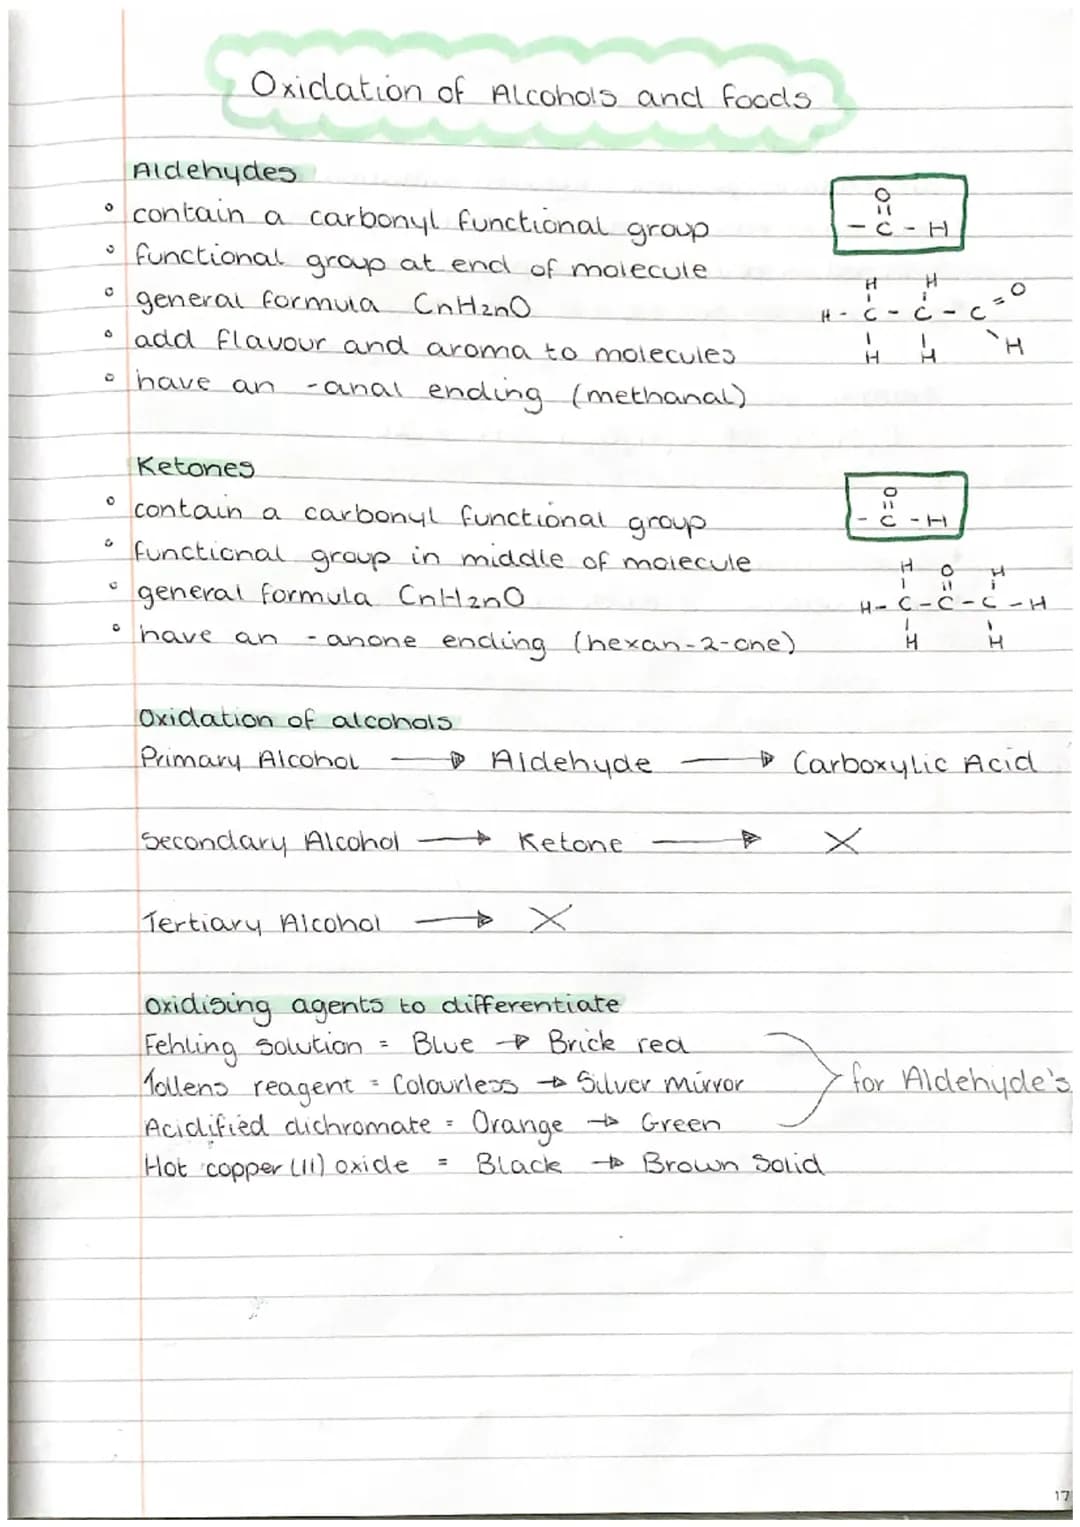 Oxidation of Alcohols and foods
Aldehydes
° contain a carbonyl functional group
° functional group at end of molecule
° general formula CnH2nO
° add flavour and aroma to molecules
° have an -anal ending (methanal)
O
=
- C - H
H H
H - C - C - C = O
H H \ H
Ketones
° contain a carbonyl functional group
° functional group in middle of molecule
° general formula CnH2nO
° have an -anone ending (hexan-2-one)
O
=
- C - H
H O H
H - C - C - C - H
H H
Oxidation of alcohols
Primary Alcohol → Aldehyde → Carboxylic Acid
Secondary Alcohol → Ketone → X
Tertiary Alcohol → X
Oxidising agents to differentiate
Fehling solution = Blue → Brick red
Tollens reagent = Colourless → Silver mirror
for Aldehyde's
Acidified dichromate = Orange → Green
Hot copper (II) oxide = Black → Brown Solid
17